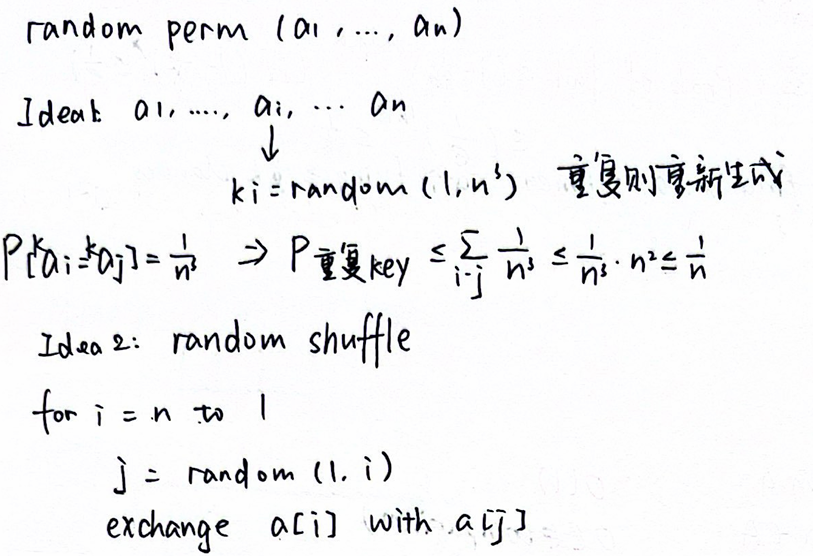 random perm (a1, ..., an)
Idea1: a1, ...., ai, ... an
↓
ki = random (1, n³) 重复则重新生成
P[kai = kaj] = 1/n³ ⇒ P重复key ≤ ∑i-j 1/n³ ≤ 1/n³ · n² ≤ 1/n
Idea 2: random shuffle
for i = n to 1
j = random (1, i)
exchange a[i] with a[j]